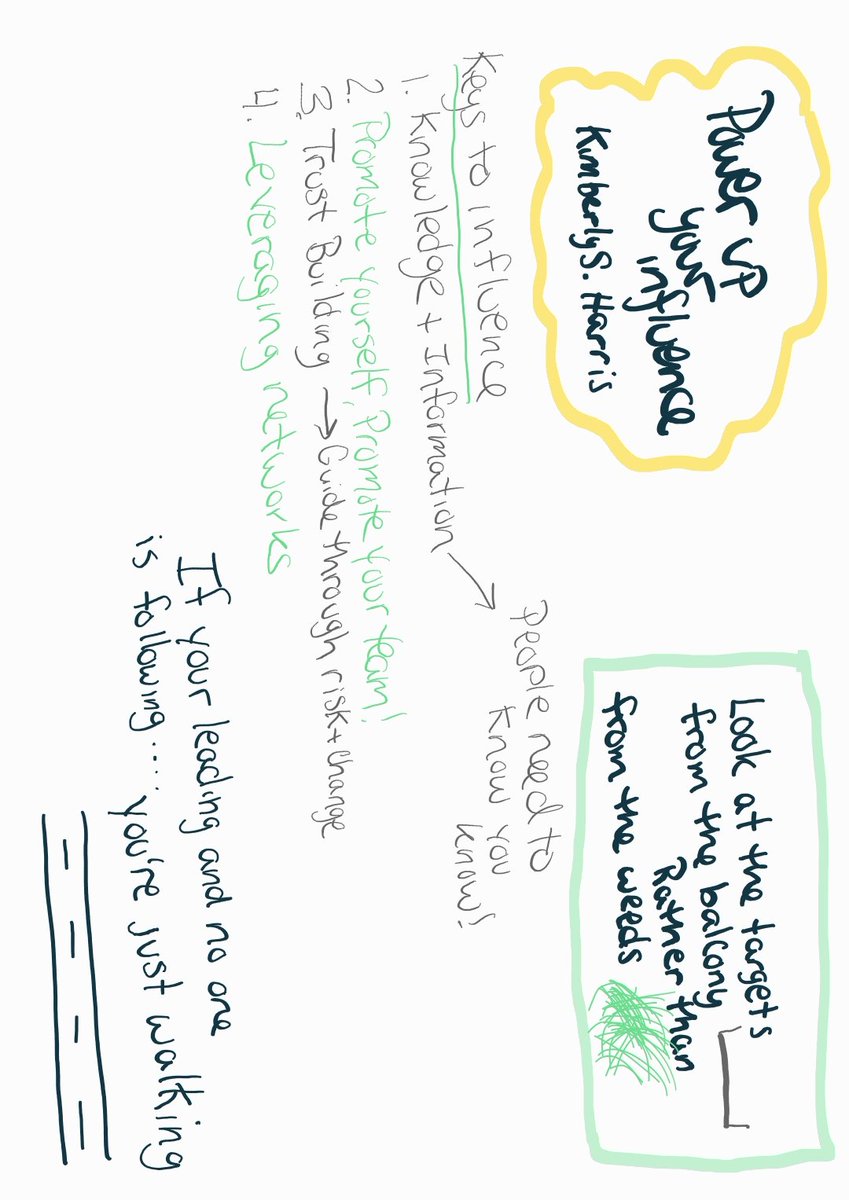 Power up
your
influence
Kimberly S. Harris
Look at the targets
from the balcony
Rather than
from the weeds
Keys to influence
1. Knowledge + Information →
People need to
know you
know!
2. Promote Yourself, Promote your team!
3. Trust Building → Guide through risk + change
4. Leveraging networks
If your leading and no one
is following.... you're just walking